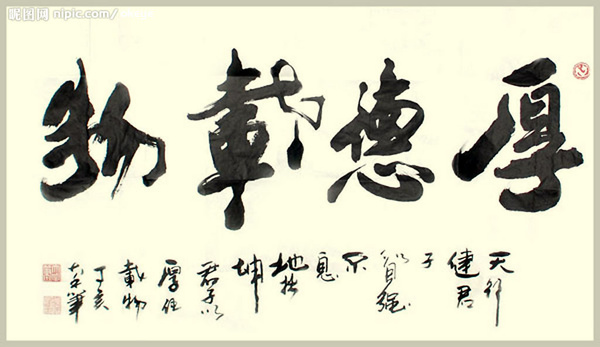 昵图网 nipic.com/
厚德載物
天行
健君
子
以自强
不
息
地势
坤
君子以
厚德
載物
丁亥